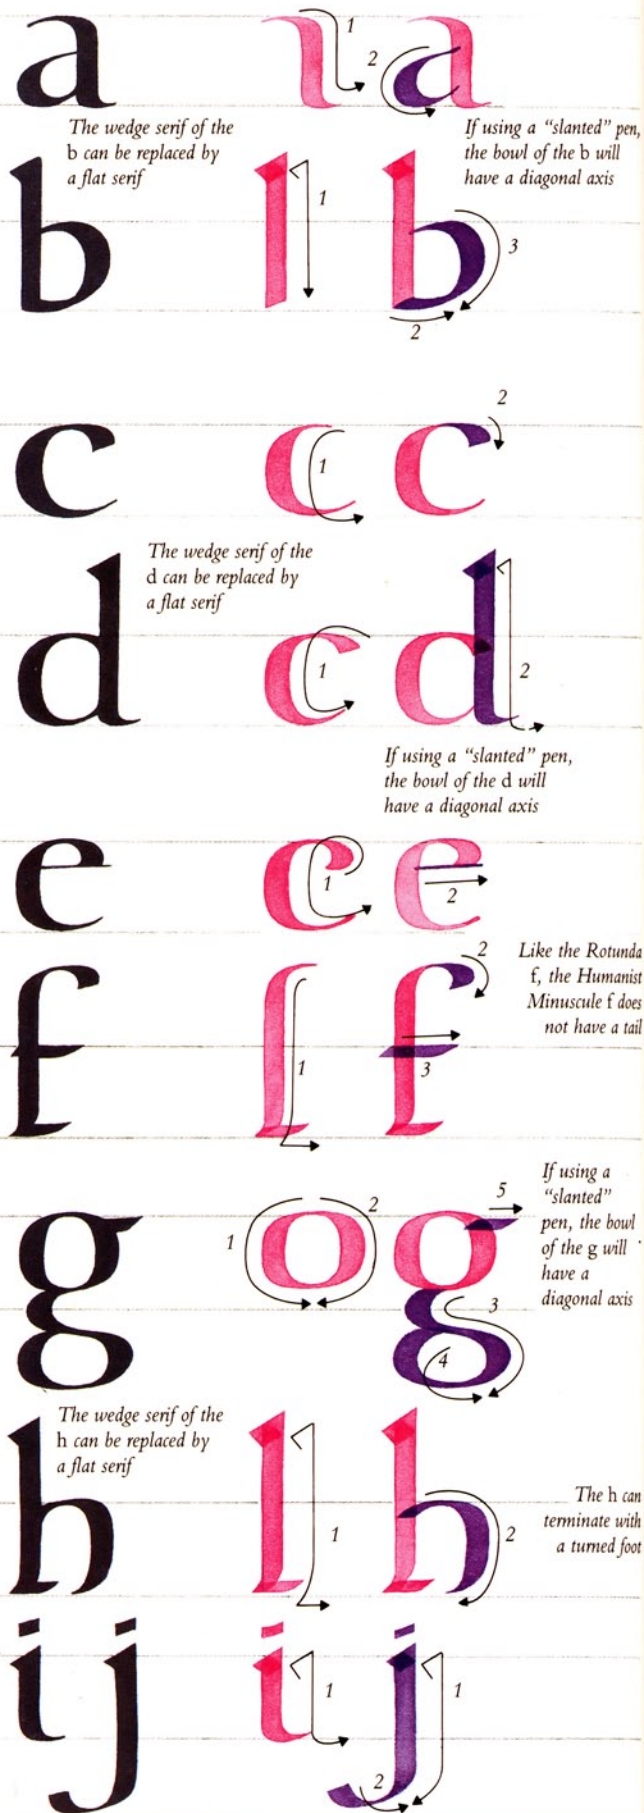 a
1
2
The wedge serif of the
b can be replaced by
a flat serif
If using a “slanted” pen,
the bowl of the b will
have a diagonal axis
b
1
3
2
c
1
2
The wedge serif of the
d can be replaced by
a flat serif
d
1
2
If using a “slanted” pen,
the bowl of the d will
have a diagonal axis
e
1
2
f
1
2
3
Like the Rotunda
f, the Humanist
Minuscule f does
not have a tail
g
1
2
5
3
4
If using a
“slanted”
pen, the bowl
of the g will
have a
diagonal axis
The wedge serif of the
h can be replaced by
a flat serif
h
1
2
The h can
terminate with
a turned foot
i j
1
1
2